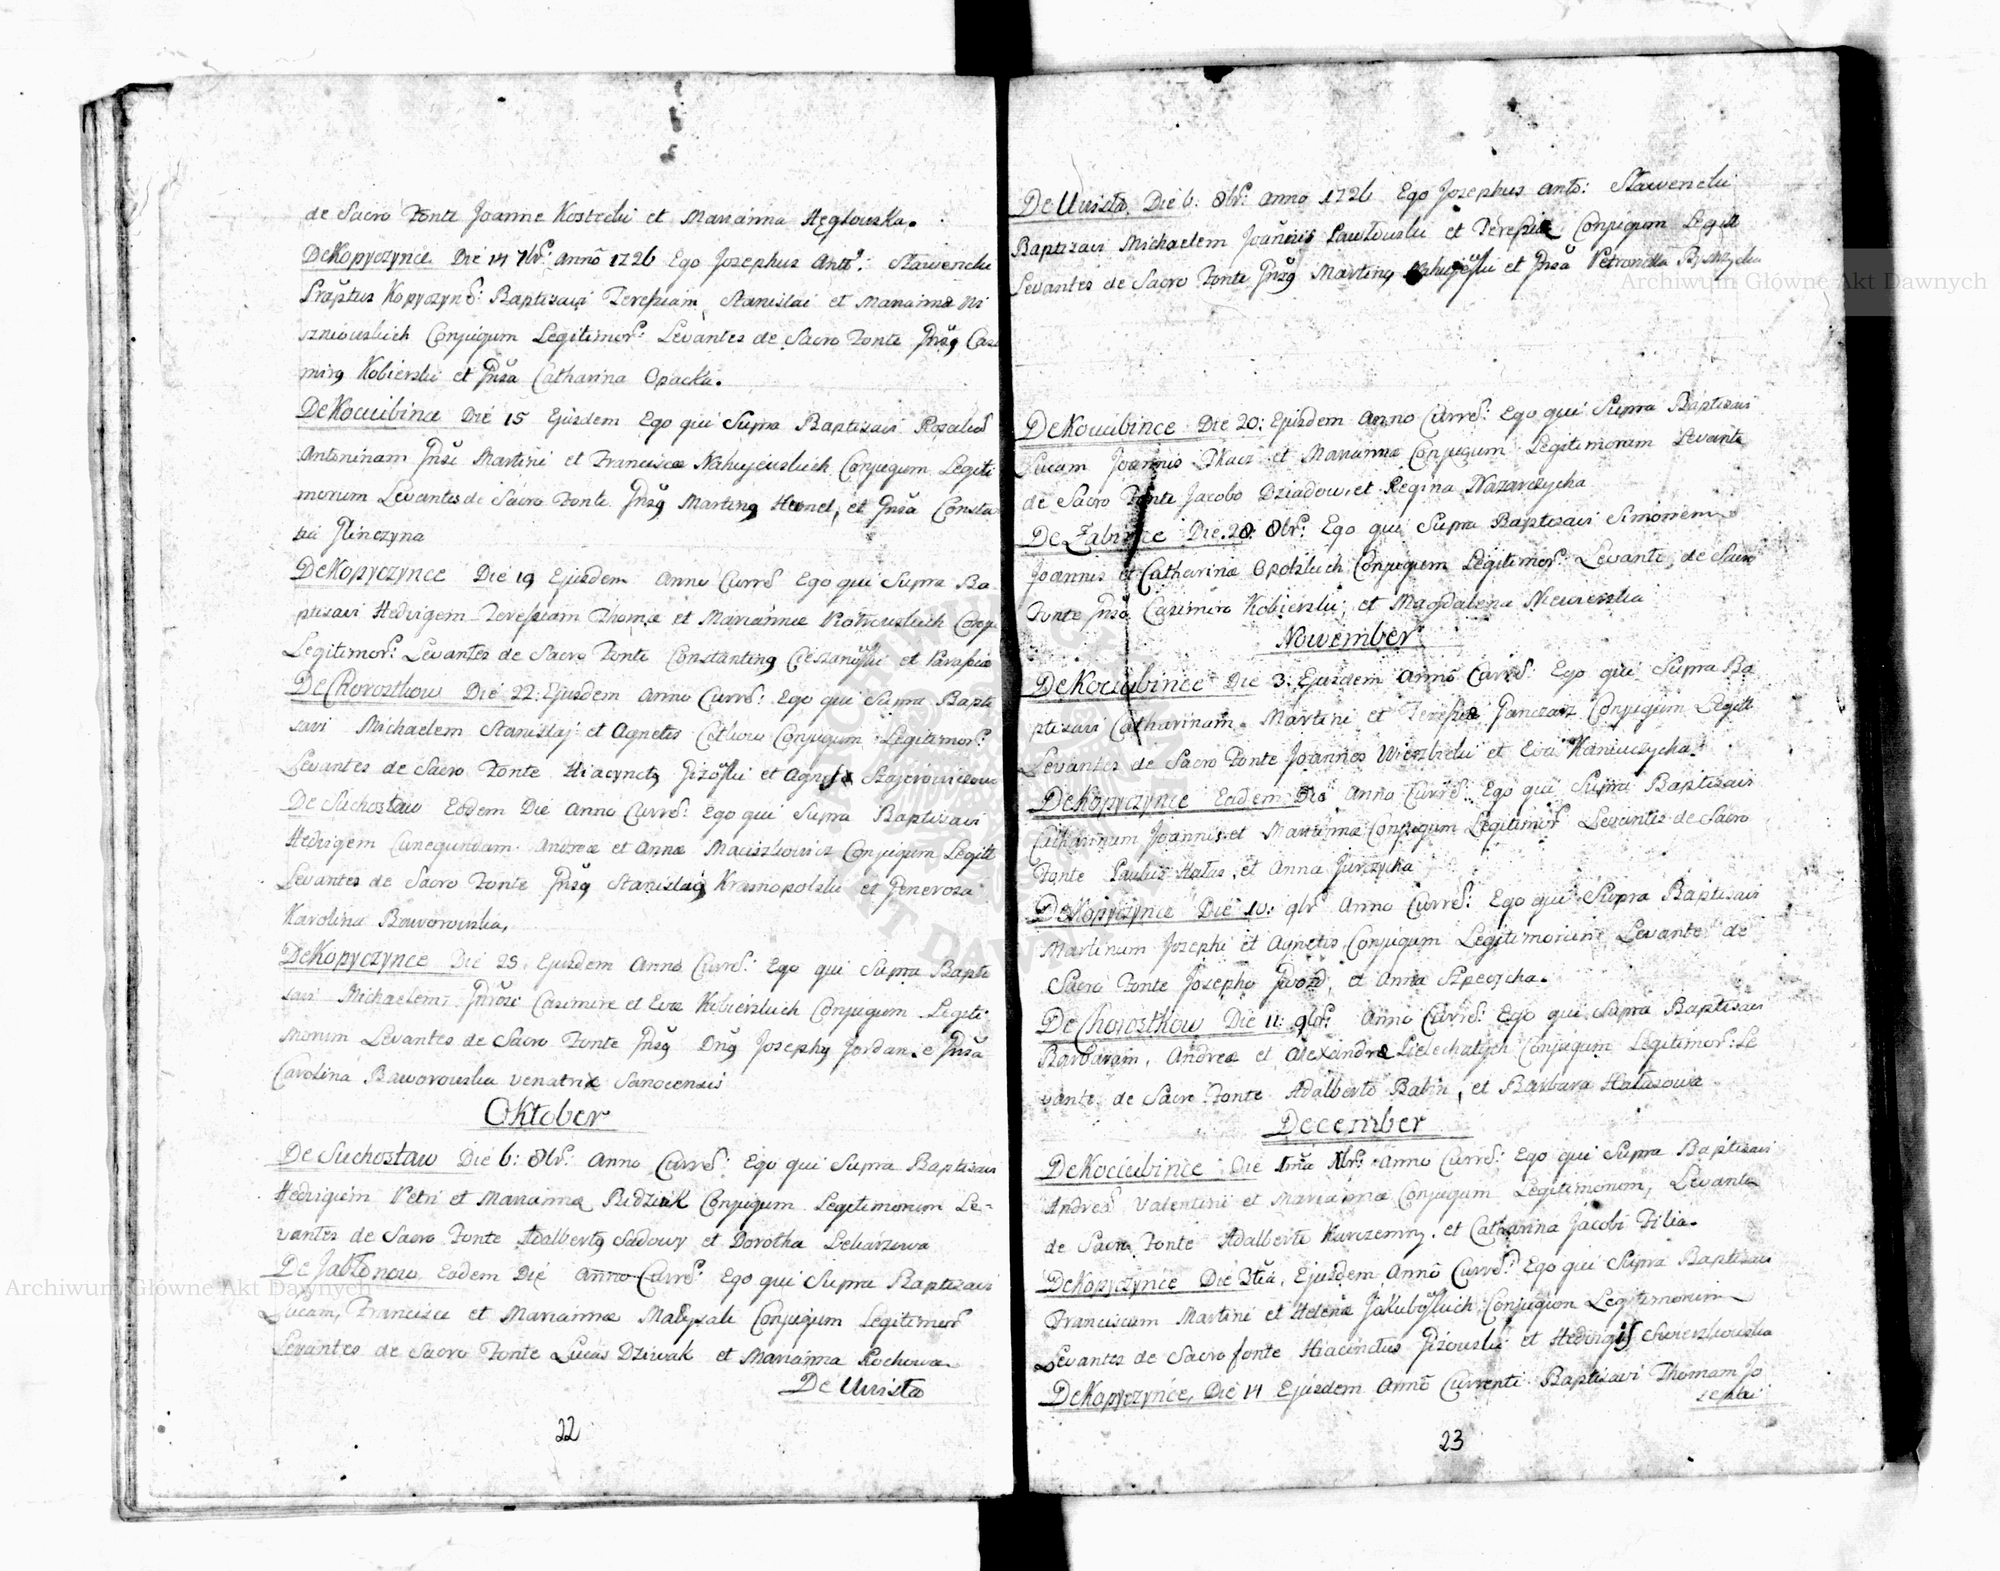 de Sacro Fonte Joanne Kostecki et Marianna Hęglowska.
De Kopyczynce Die 14 7br: Anno 1726 Ego Josephus Anto: Sławencki
Præptus Kopyczyn: Baptisavi Teresiam, Stanislai et Marianna Wi
szniowskich Conjugum Legitimor: Levantes de Sacro Fonte Gnsg Casi
mirg Kobierski et Gnsa Catharina Opacka.
De Kociubince Die 15 Ejusdem Ego qui Supra Baptisavi Rosaliam
Antoninam Gnsi Martini et Franciscæ Nahujewskich Conjugum Legiti
morum Levantes de Sacro Fonte Gnsg Marting Hemel, et Gnsa Consta
De Kopyczynce Die 19 Ejusdem Anno Curre: Ego qui Supra Ba
ptisavi Hedvigem Teresiam Thomæ et Mariannæ Piotrowskich Conju
Legitimor: Levantes de Sacro Fonte Constanting et Parasia
De Chorostkow Die 22: Ejusdem Anno Curre: Ego qui Supra Bapti
savi Michaelem Stanislaj et Agnetis Conjugum Legitimor:
Levantes de Sacro Fonte Hiacyncty Gizowski et Agnes
De Suchostaw Eodem Die Anno Curre: Ego qui Supra Baptisavi
Hedvigem Cunegundam Andreæ et Annæ Conjugum Legitt
Levantes de Sacro Fonte Gnsg Stanislaus Krasnopolski et Generosa
Karolina Baworowska,
De Kopyczynce Die 25. Ejusdem Anno Curre: Ego qui Supra Bapti
savi Michaelem, Casimiri et Evæ Kobierskich Conjugum Legiti
morum Levantes de Sacro Fonte Gnsg Dng Josephg Jordan, e Gnsa
Carolina Baworowska Venatrix Sanocensis
Oktober
De Suchostaw Die 6: 8br: Anno Curre: Ego qui Supra Baptisavi
Hedvigem Petri et Mariannæ Rudziak Conjugum Legitimorum Le-
vantes de Sacro Fonte Adalbertg Sadowy et Dorotha Lekarzowa
De Jabłonow Eodem Die Anno Curre: Ego qui Supra Baptisavi
Lucam, Francisci et Mariannæ Conjugum Legitimor
Levantes de Sacro Fonte Lucas Dziwak et Marianna Rochowa
De Uwista
22
De Uwista Die 6: 8br: Anno 1726 Ego Josephus Anto: Sławencki
Baptisavi Michaelem Joannis Pawlowski et Teresiæ Conjugum Legitt
Levantes de Sacro Fonte Gnsg Marting et Gnsa Petronella
De Kociubince Die 20: Ejusdem Anno Curre: Ego qui Supra Baptisavi
Lucam Joannis Tkacz et Mariannæ Conjugum Legitimorum Levante
de Sacro Fonte Jacobo Dziadow, et Regina Nazarczycha
De Zabince Die 28 8br: Ego qui Supra Baptisavi Simonem
Joannis et Catharinæ Opolskich Conjugum Legitimor: Levante, de Sacro
Fonte Gnso Casimiro Kobierski, et Magdalena
November
De Kociubince Die 3: Ejusdem Anno Curre: Ego qui Supra Ba
ptisavi Catharinam Martini et Teresiæ Ganczarz Conjugum Legitt
Levantes de Sacro Fonte Joannes Wierzbicki et Eva
De Kopyczynce Eadem Die Anno Curre: Ego qui Supra Baptisavi
Catharinam Joannis et Mariannæ Conjugum Legitimor Levantes de Sacro
Fonte Paulus Hałas, et Anna Jurczycha
De Kopyczynce Die 10: 9br Anno Curre: Ego qui Supra Baptisavi
Martinum Josephi et Agnetis Conjugum Legitimorum Levante de
Sacro Fonte Josepho Gwozd, et Anna
De Chorostkow Die 11: 9br: Anno Curre: Ego qui Supra Baptisavi
Barbaram, Andreæ et Alexandræ Conjugum Legitimor: Le
vante de Sacro Fonte Adalberto Babin, et Barbara Hałasowa
December
De Kociubince Die 1ma Xbr: Anno Curre: Ego qui Supra Baptisavi
Andrea Valentini et Mariannæ Conjugum Legitimorum, Levante
de Sacro Fonte Adalberto Karczemny, et Catharina Jacobi Filia.
De Kopyczynce Die 3tia, Ejusdem Anno Curre: Ego qui Supra Baptisavi
Franciscum Martini et Helenæ Jakubowskich Conjugum Legitimorum
Levantes de Sacro fonte Hiacintus Gizowski et Hedvigis Swierzkowska
De Kopyczynce, Die 14 Ejusdem Anno Currenti Baptisavi Thomam Jo
sepha
23
Archiwum Główne Akt Dawnych
Archiwum Główne Akt Dawnych